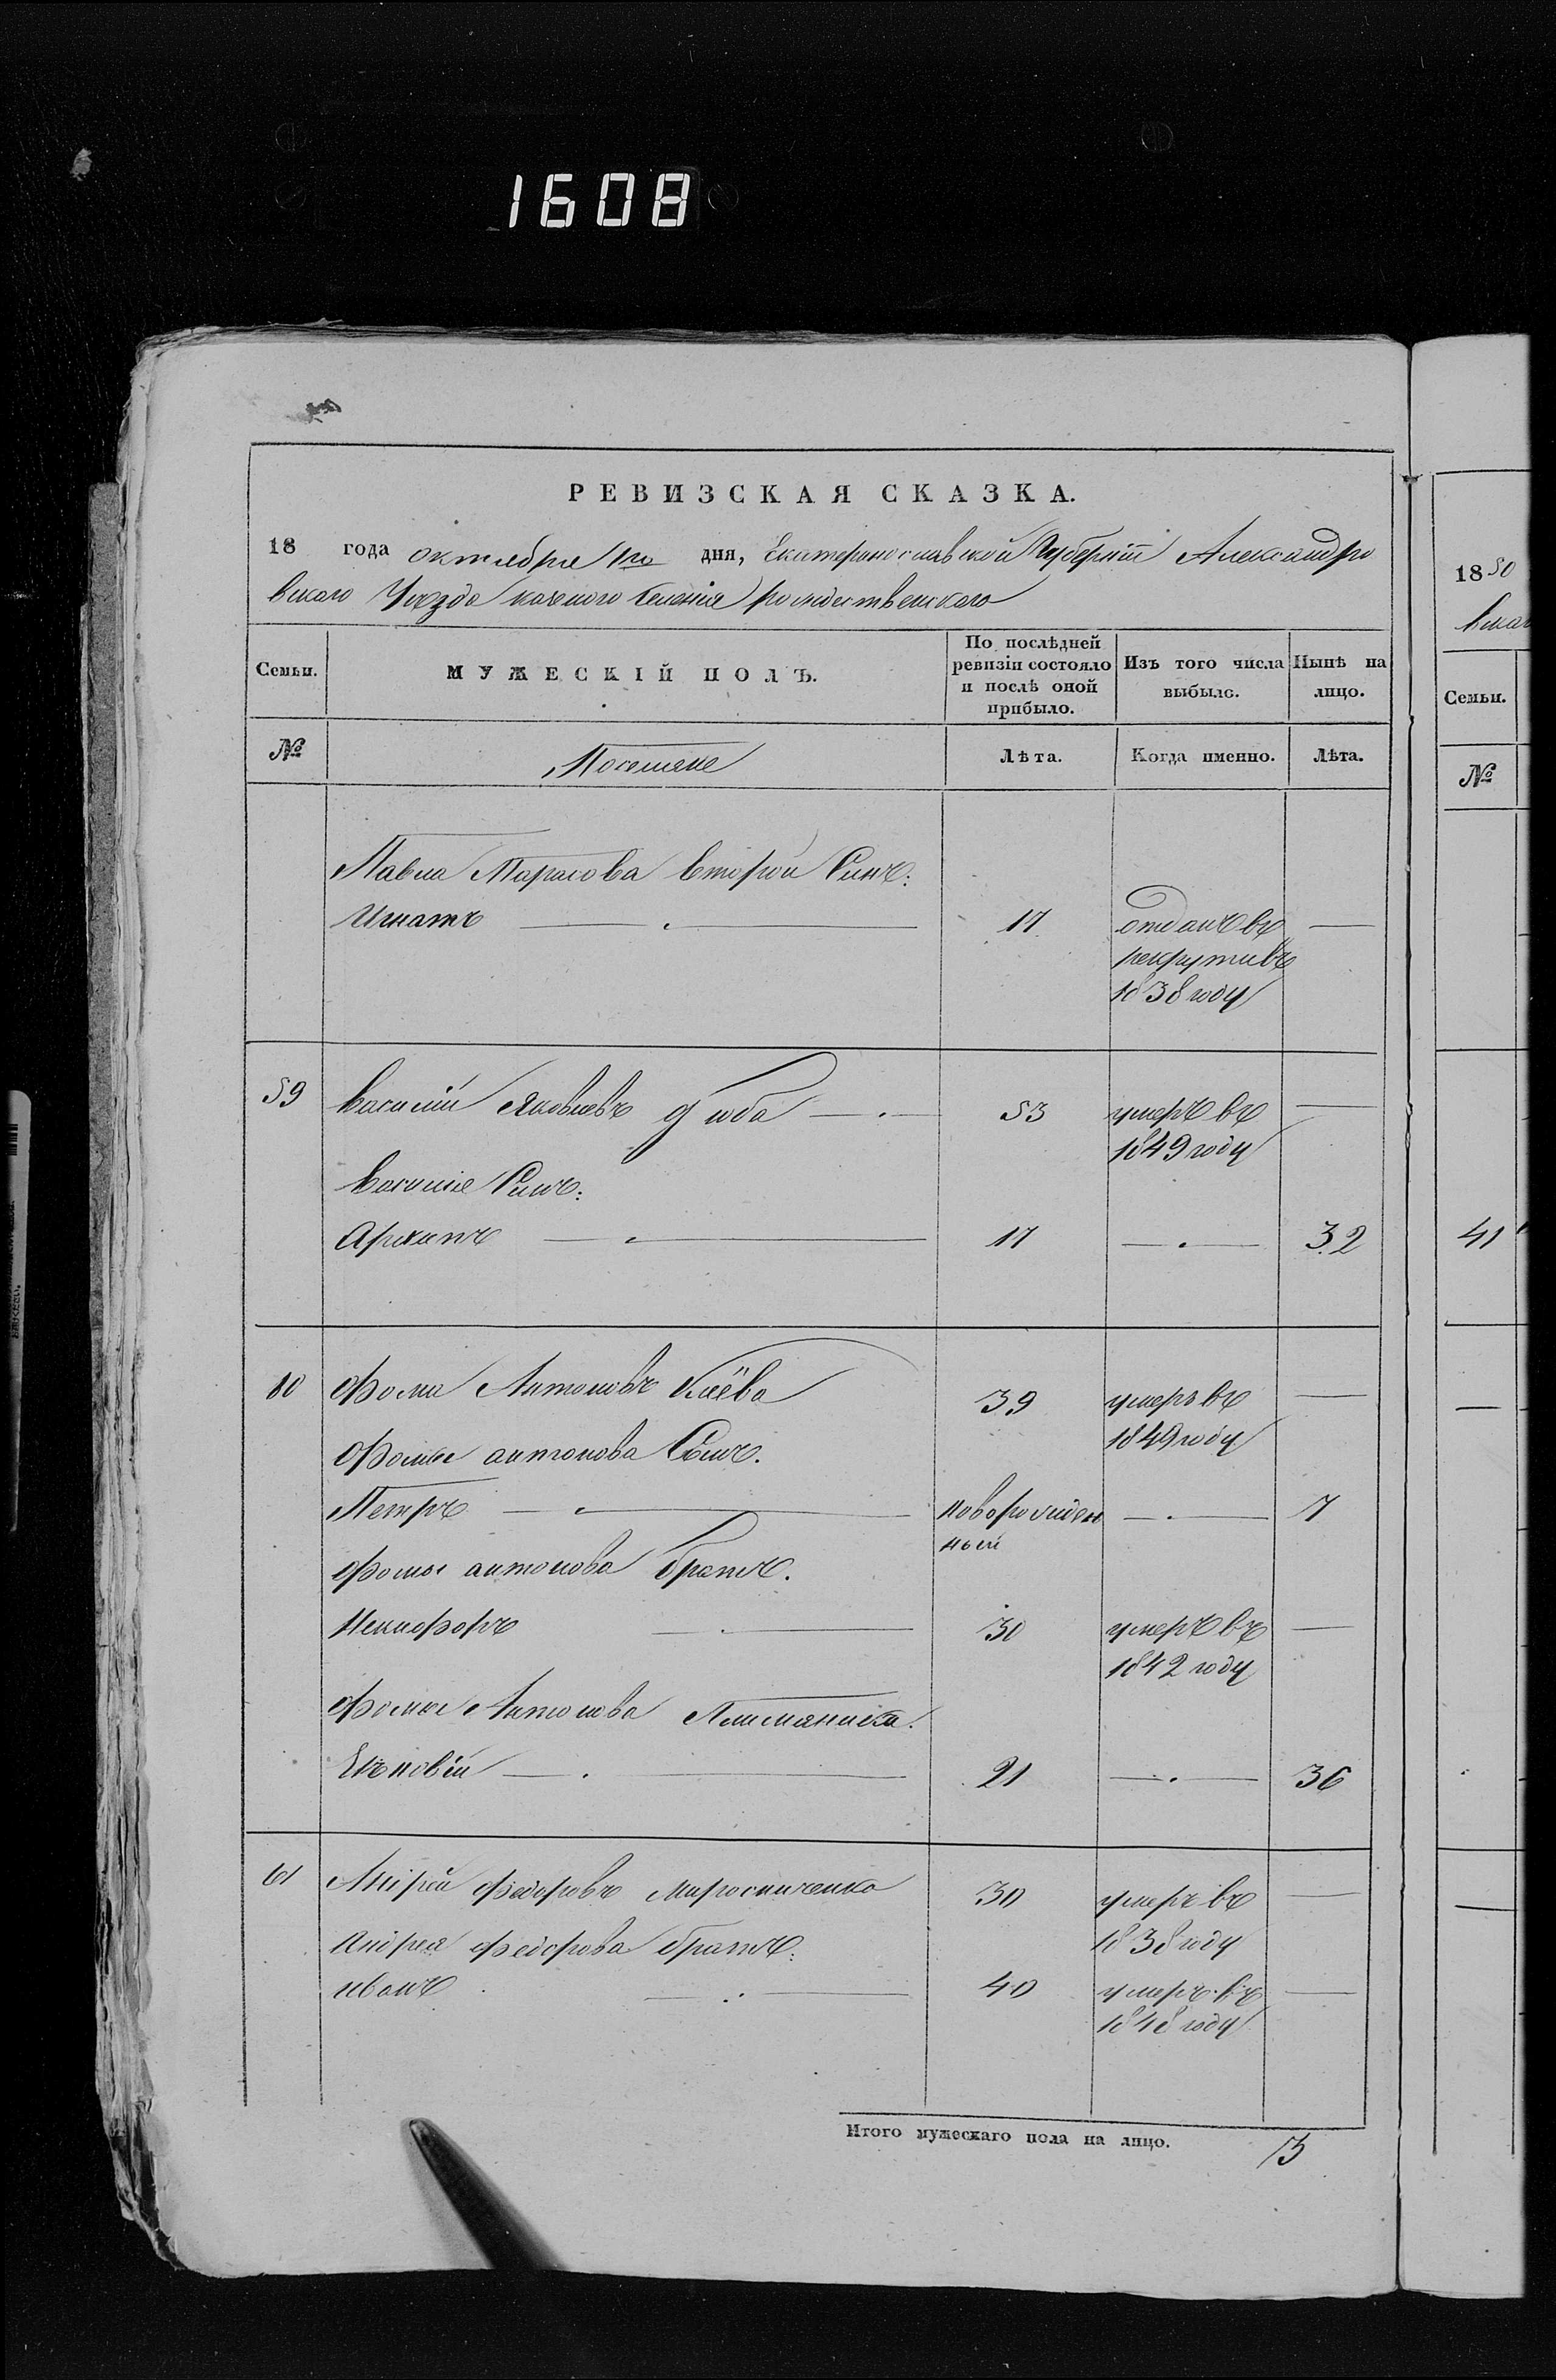 1608
РЕВИЗСКАЯ СКАЗКА.
18 года октября 1го дня, Екатеринославской Губернiи Александро
вскаго Уезда казеного Селенiя рождественскаго
Семьи.
МУЖЕСКІЙ ПОЛЪ.
По послѣдней ревизіи состояло и послѣ оной прибыло.
Изъ того числа выбыло.
Нынѣ на лицо.
№
Поселяне
Лѣта.
Когда именно.
Лѣта.
Павла Тарасова второй Синъ:
Игнатъ 17 отданъ въ
рекруты въ
1838 году
59 василiй Яковлевъ 53 умеръ въ
1849 году
василiя Синъ:
Архипъ 17 32
60 Фома Антоновъ 39 умеръ въ
1849 году
Фомы антонова Сынъ.
Петръ новорожден 7
ный
Фомы антонова братъ.
Некифоръ 30 умеръ въ
1842 году
Фомы Антонова
21 36
61 Андрей Федоровъ Мирошниченко 30 умеръ въ
Андрея Федорова братъ: 1838 году
иванъ 40 умеръ въ
1848 году
Итого мужескаго пола на лицо. 3
1850
вскаго
Семьи.
№
41